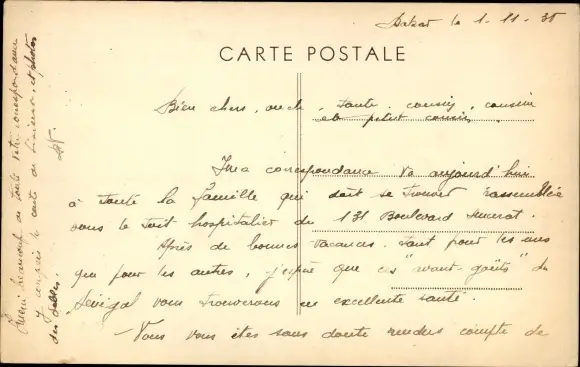 Dakar le 1-11-35
CARTE POSTALE
Bien chers, oncle, tante, cousin, cousine
et petit cousin.
Ma correspondance va aujourd'hui
à toute la famille qui doit se trouver rassemblée
sous le toit hospitalier du 131 Boulevard Murat.
Après de bonnes vacances, tant pour les uns
que pour les autres, j'espère que ces "avant-goûts" du
Sénégal vous trouverons en excellente santé.
- Vous vous êtes sans doute rendus compte de
Merci beaucoup de toute votre correspondance
y compris la carte de et photos
des Sables.